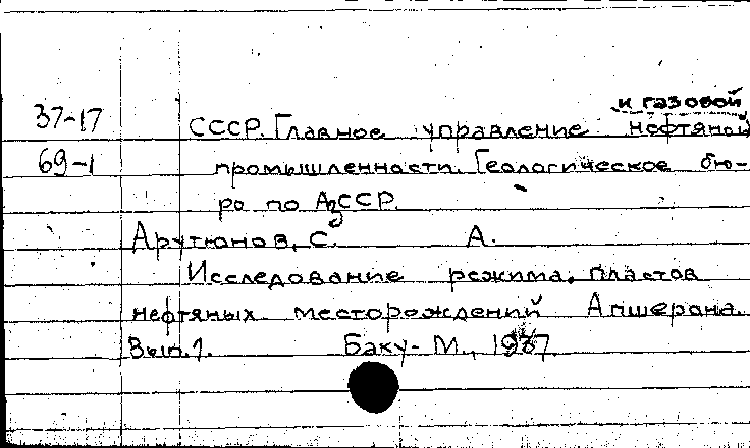 и газовой
37-17 СССР. Главное управление нефтяной
69-1 промышленности. Геологическое бю-
ро по АзССР.
Арутюнов, С. А.
Исследование режима пластов
нефтяных месторождений Апшерона.
Вып. 1. Баку - М., 1937.